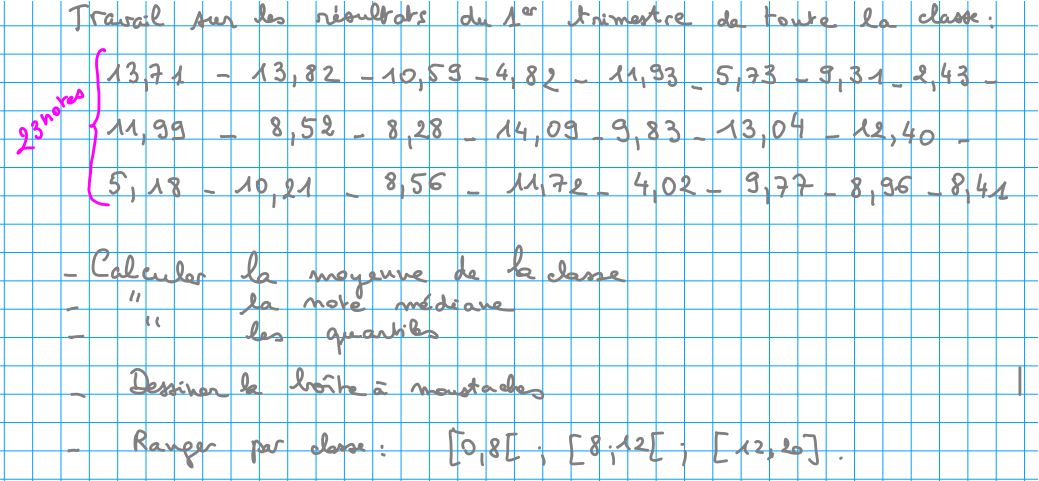 Travail sur les résultats du 1er trimestre de toute la classe :
23 notes
13,71 - 13,82 - 10,59 - 4,82 - 11,93 - 5,73 - 9,31 - 2,43 -
11,99 - 8,52 - 8,28 - 14,09 - 9,83 - 13,04 - 12,40 -
5,18 - 10,21 - 8,56 - 11,72 - 4,02 - 9,77 - 8,96 - 8,41
- Calculer la moyenne de la classe
- " la note médiane
- " les quartiles
- Dessiner la boîte à moustaches
- Ranger par classe : [0,8[ ; [8;12[ ; [12,20] .